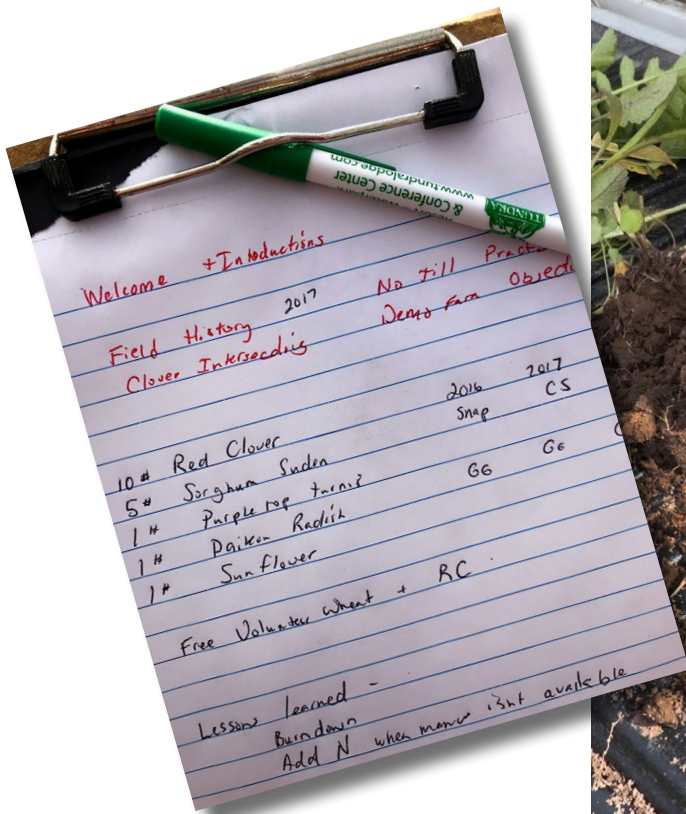 & Conference Center
www.tundralodge.com
TUNDRA
Welcome + Introductions
Field History 2017 No Till Pract
Clover Interseeding Demo Farm Object
2016 2017
Snap CS
10# Red Clover
5# Sorghum Sudan
1# Purple top turnip GG GG
1# Daikon Radish
1# Sunflower
Free Volunteer wheat + RC
Lessons learned -
Burndown
Add N when manure isnt available